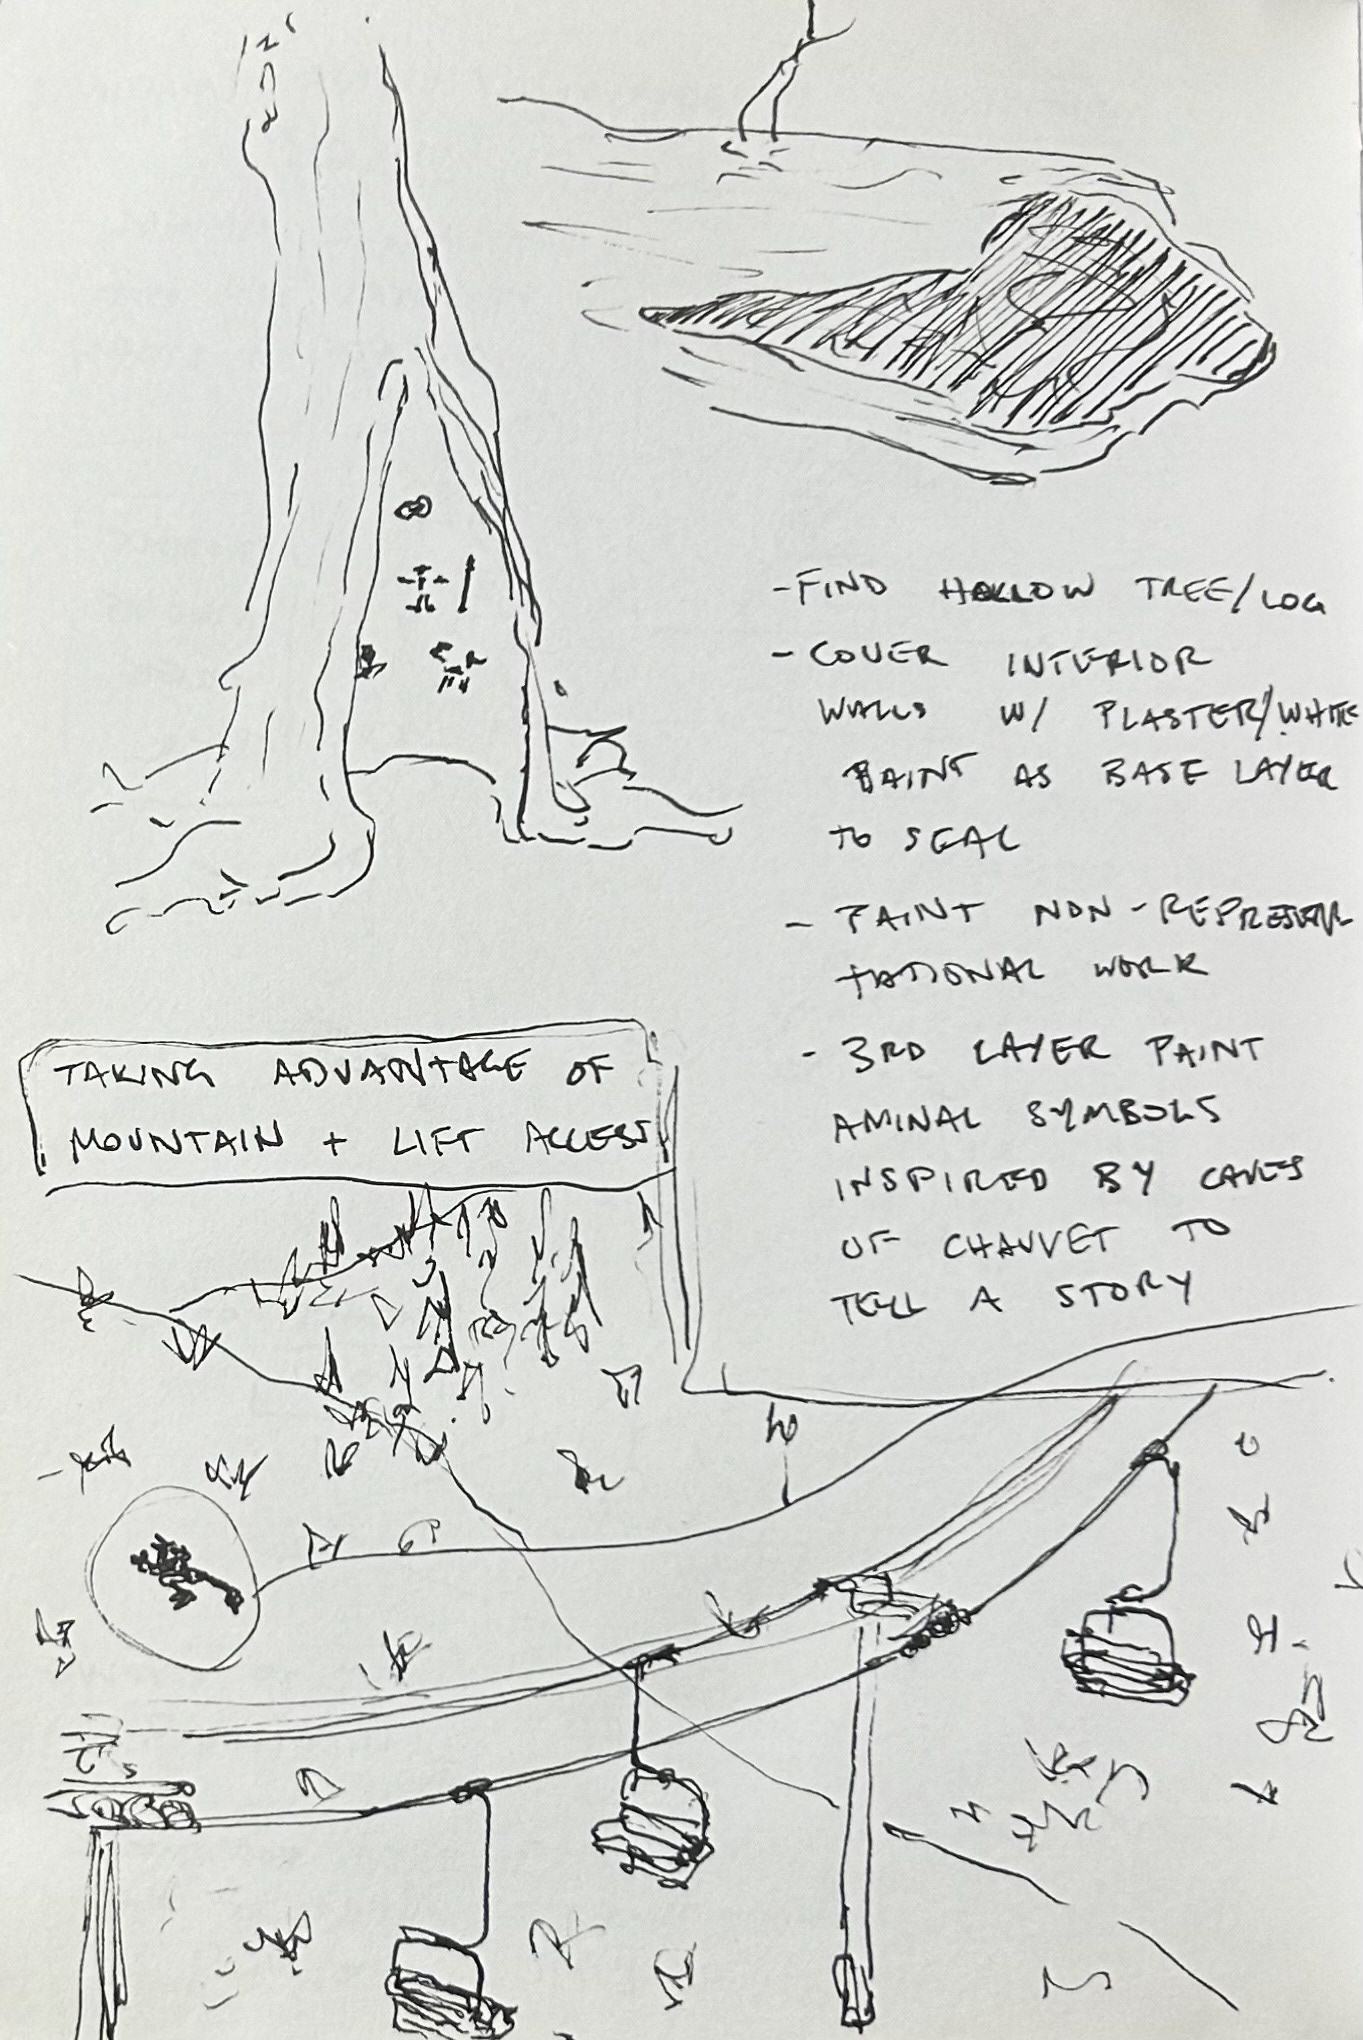 - FIND HOLLOW TREE/LOG
- COVER INTERIOR
WALLS W/ PLASTER/WHITE
PAINT AS BASE LAYER
TO SEAL
- PAINT NON-REPRESEN
TATIONAL WORK
- 3RD LAYER PAINT
AMINAL SYMBOLS
INSPIRED BY CAVES
OF CHAUVET TO
TELL A STORY
TAKING ADVANTAGE OF
MOUNTAIN + LIFT ACCESS